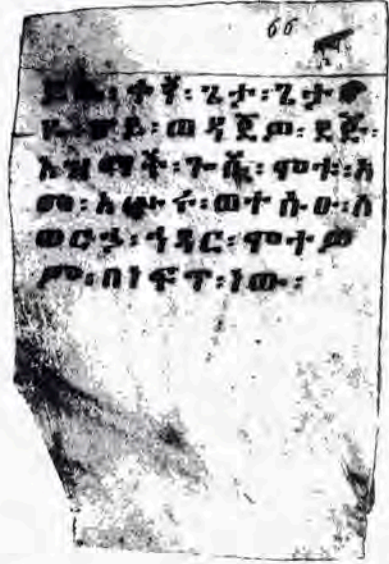 ጌታ፡ጌታው
ወዳጀም፡ደጅ፡
አዝማች፡ጐሹ፡ሞቱ፡አ
መ፡አሡሩ፡ወተሱዑ፡ለ
ወርኃ፡ኅዳር፡ሞተም
ም፡በነፍጥ፡ነው፡